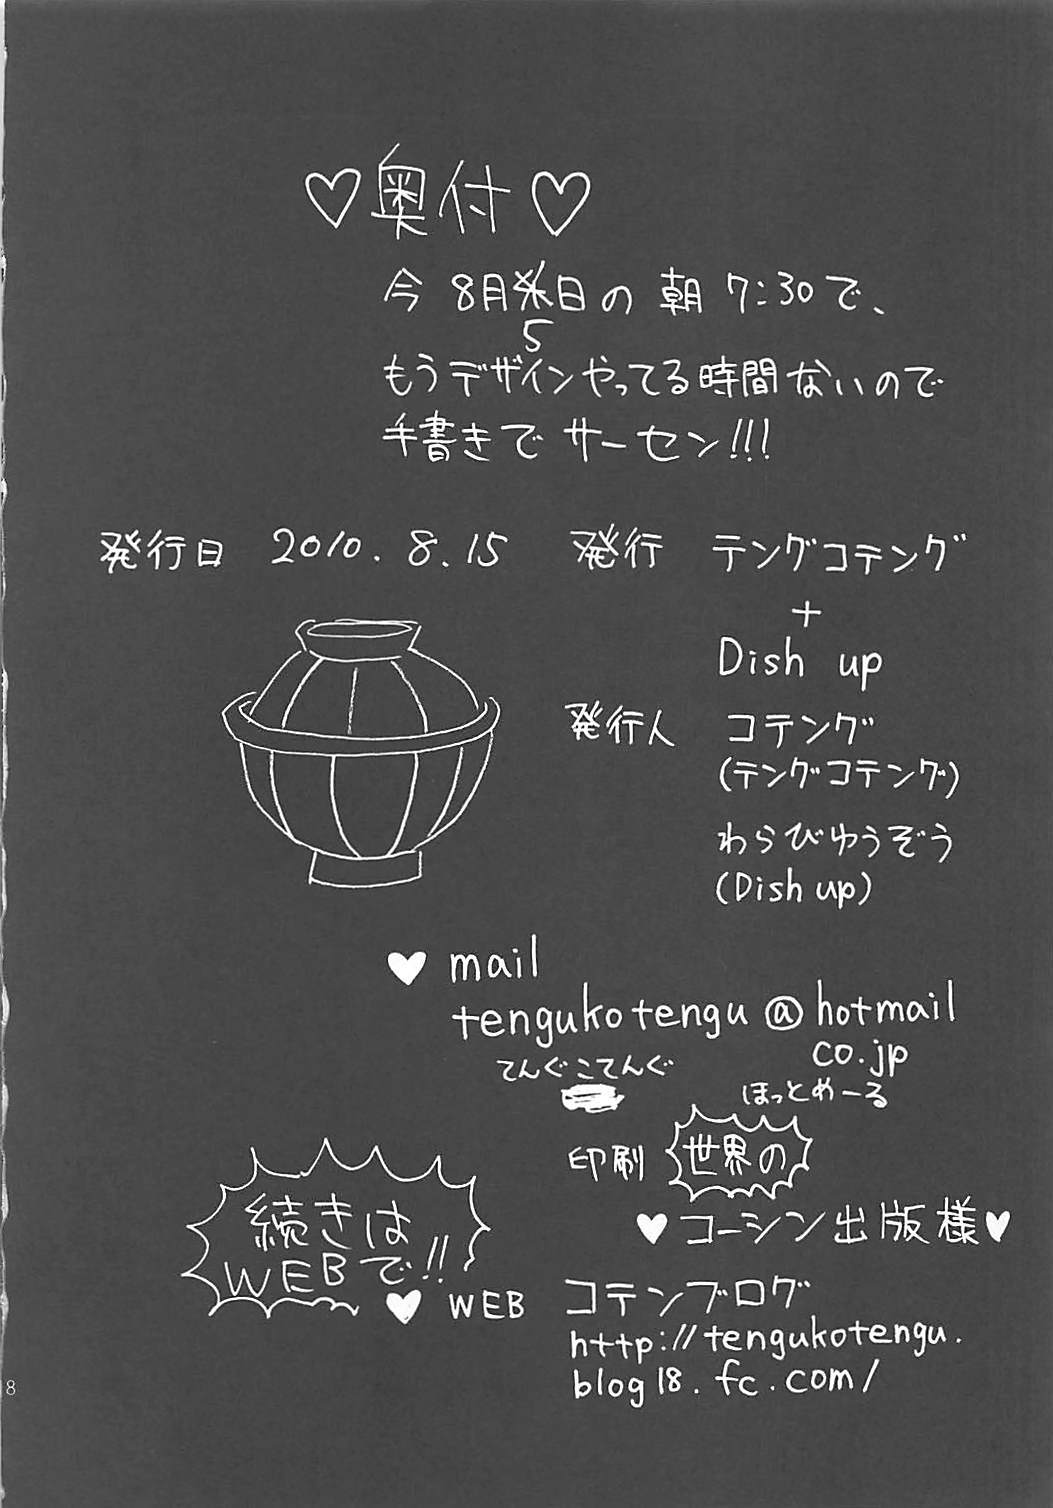 ♡奥付♡
今 8月5日の 朝 7:30で、
もうデザインやってる時間ないので
手書きで サーセン!!!
発行日 2010.8.15 発行 テングコテング
+
Dish up
発行人 コテング
(テングコテング)
わらびゆうぞう
(Dish up)
♥ mail
tengukotengu@hotmail
co.jp
てんぐこてんぐ
ほっとめーる
印刷 世界の
♥コーシン出版様♥
続きは
WEBで!!
♥ WEB コテンブログ
http://tengukotengu.
blog18.fc.com/
8